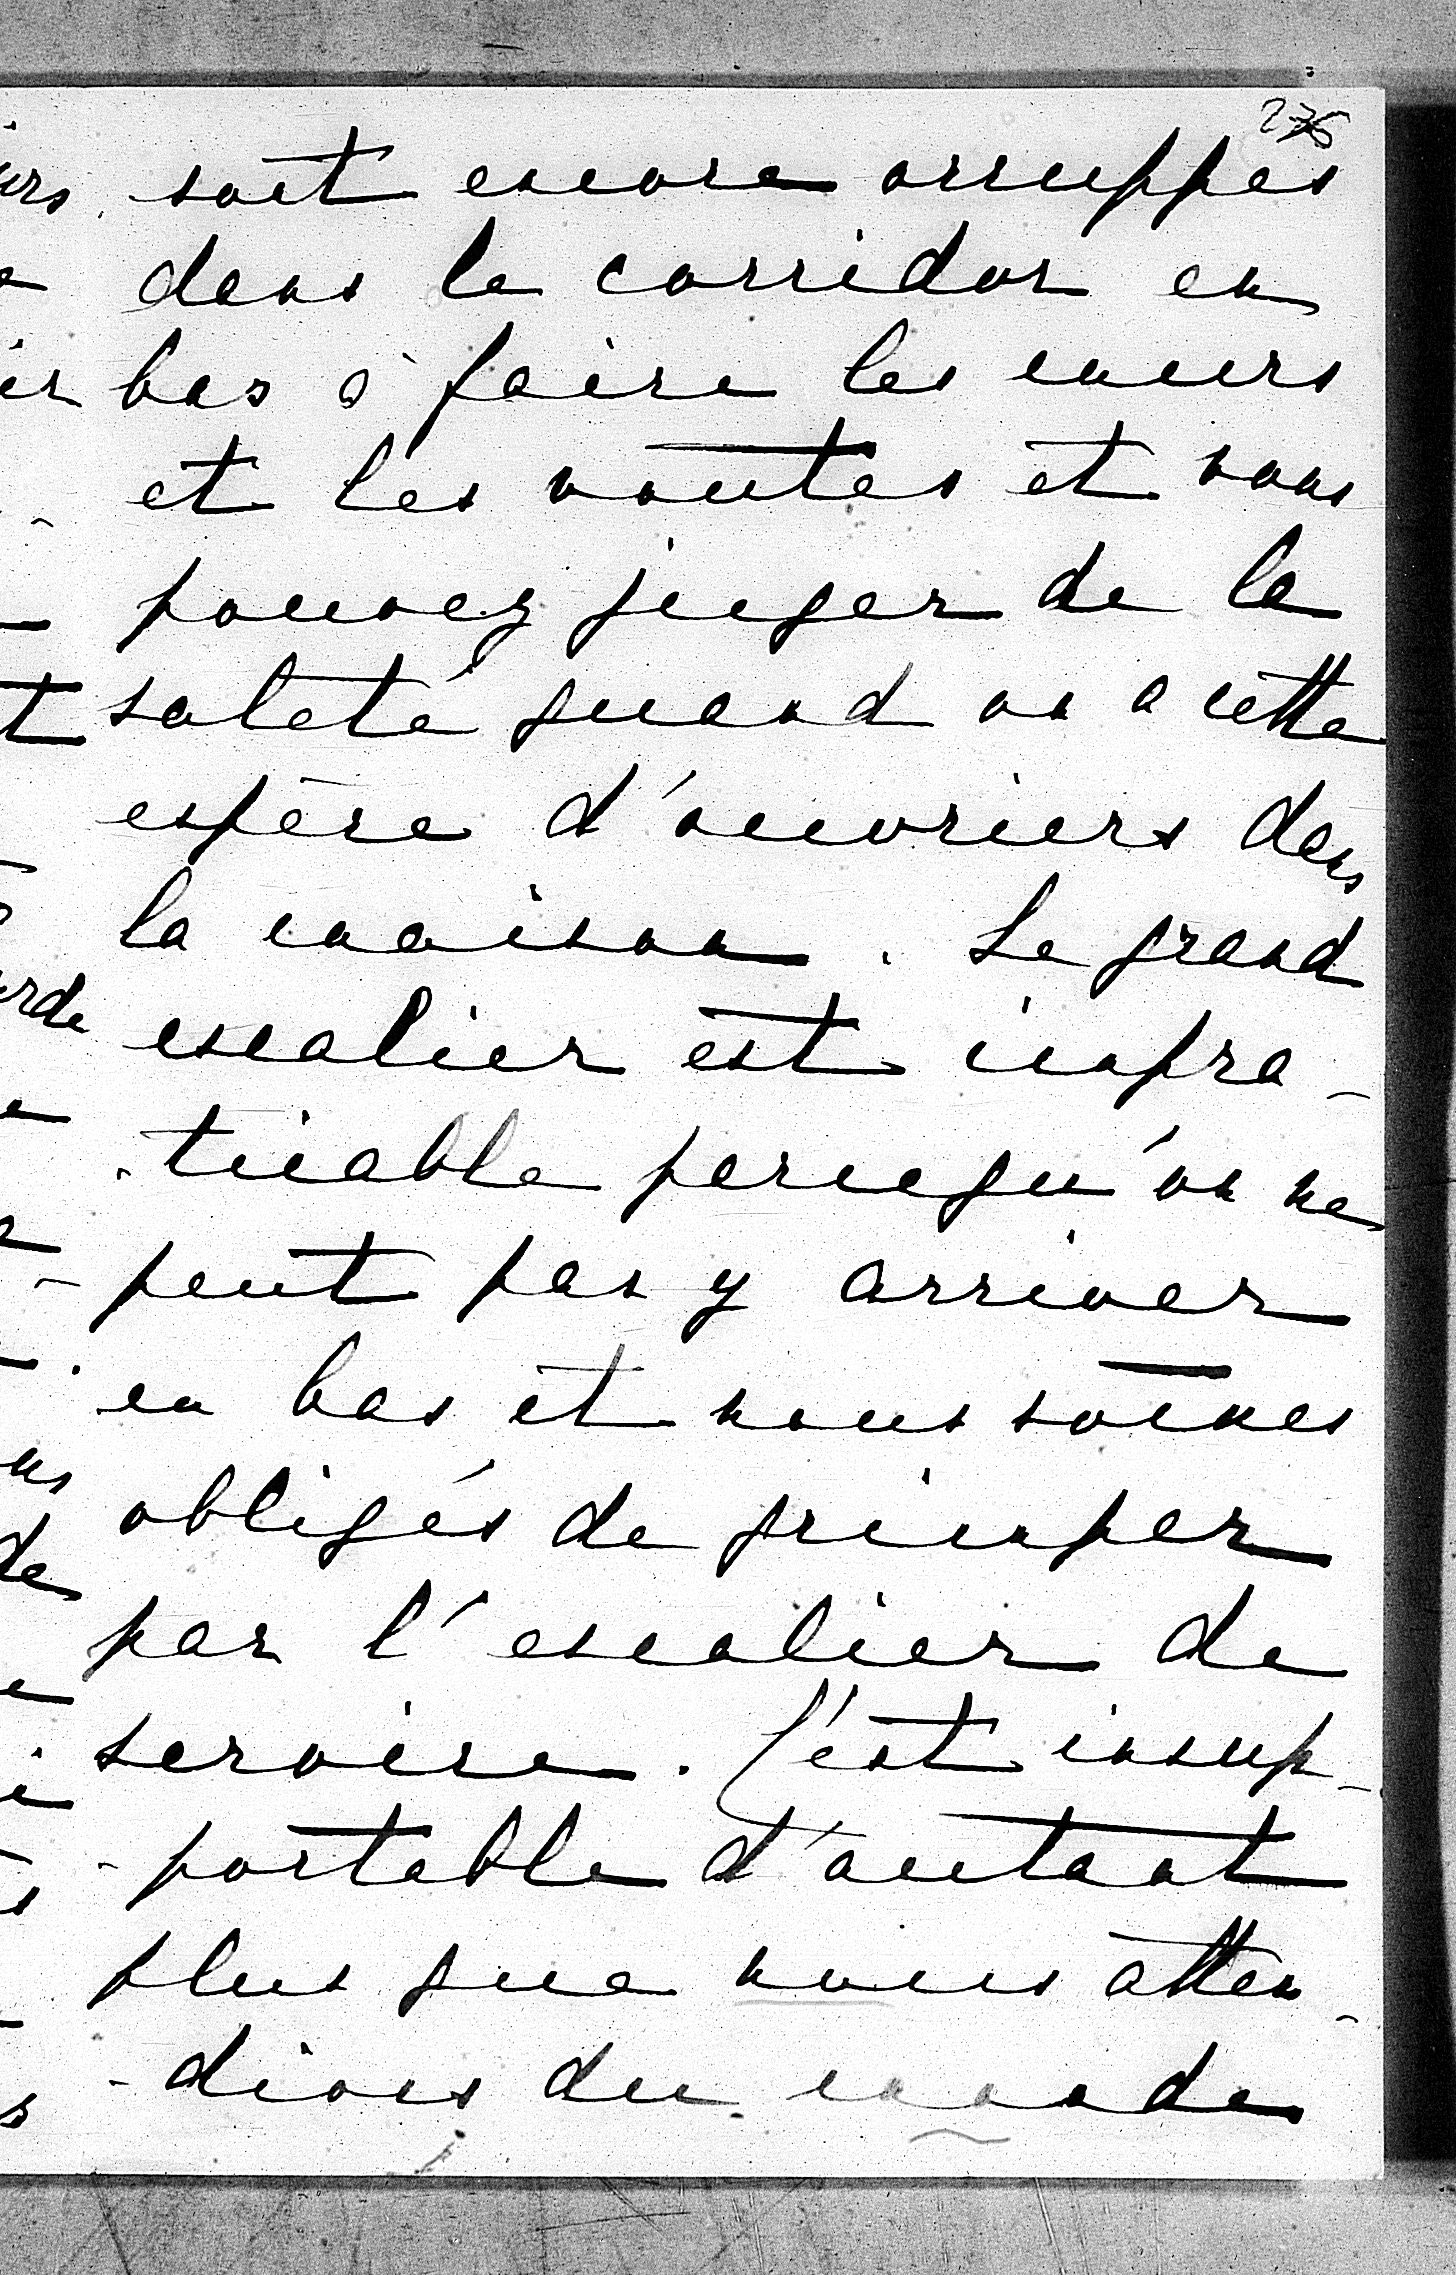 276
sont encore occuppés
dans le corridor en
bas à faire les murs
et les voutes et vous
pouvez juger de la
saleté quand on a cette
espèce d'ouvriers dans
la maison. Le grand
escalier est impra-
-ticable parcequ'on ne
peut pas y arriver
en bas et nous som̄es
obligés de grimper
par l'escalier de
service. C'est insup-
-portable d'autant
plus que nous atten-
-dions du monde